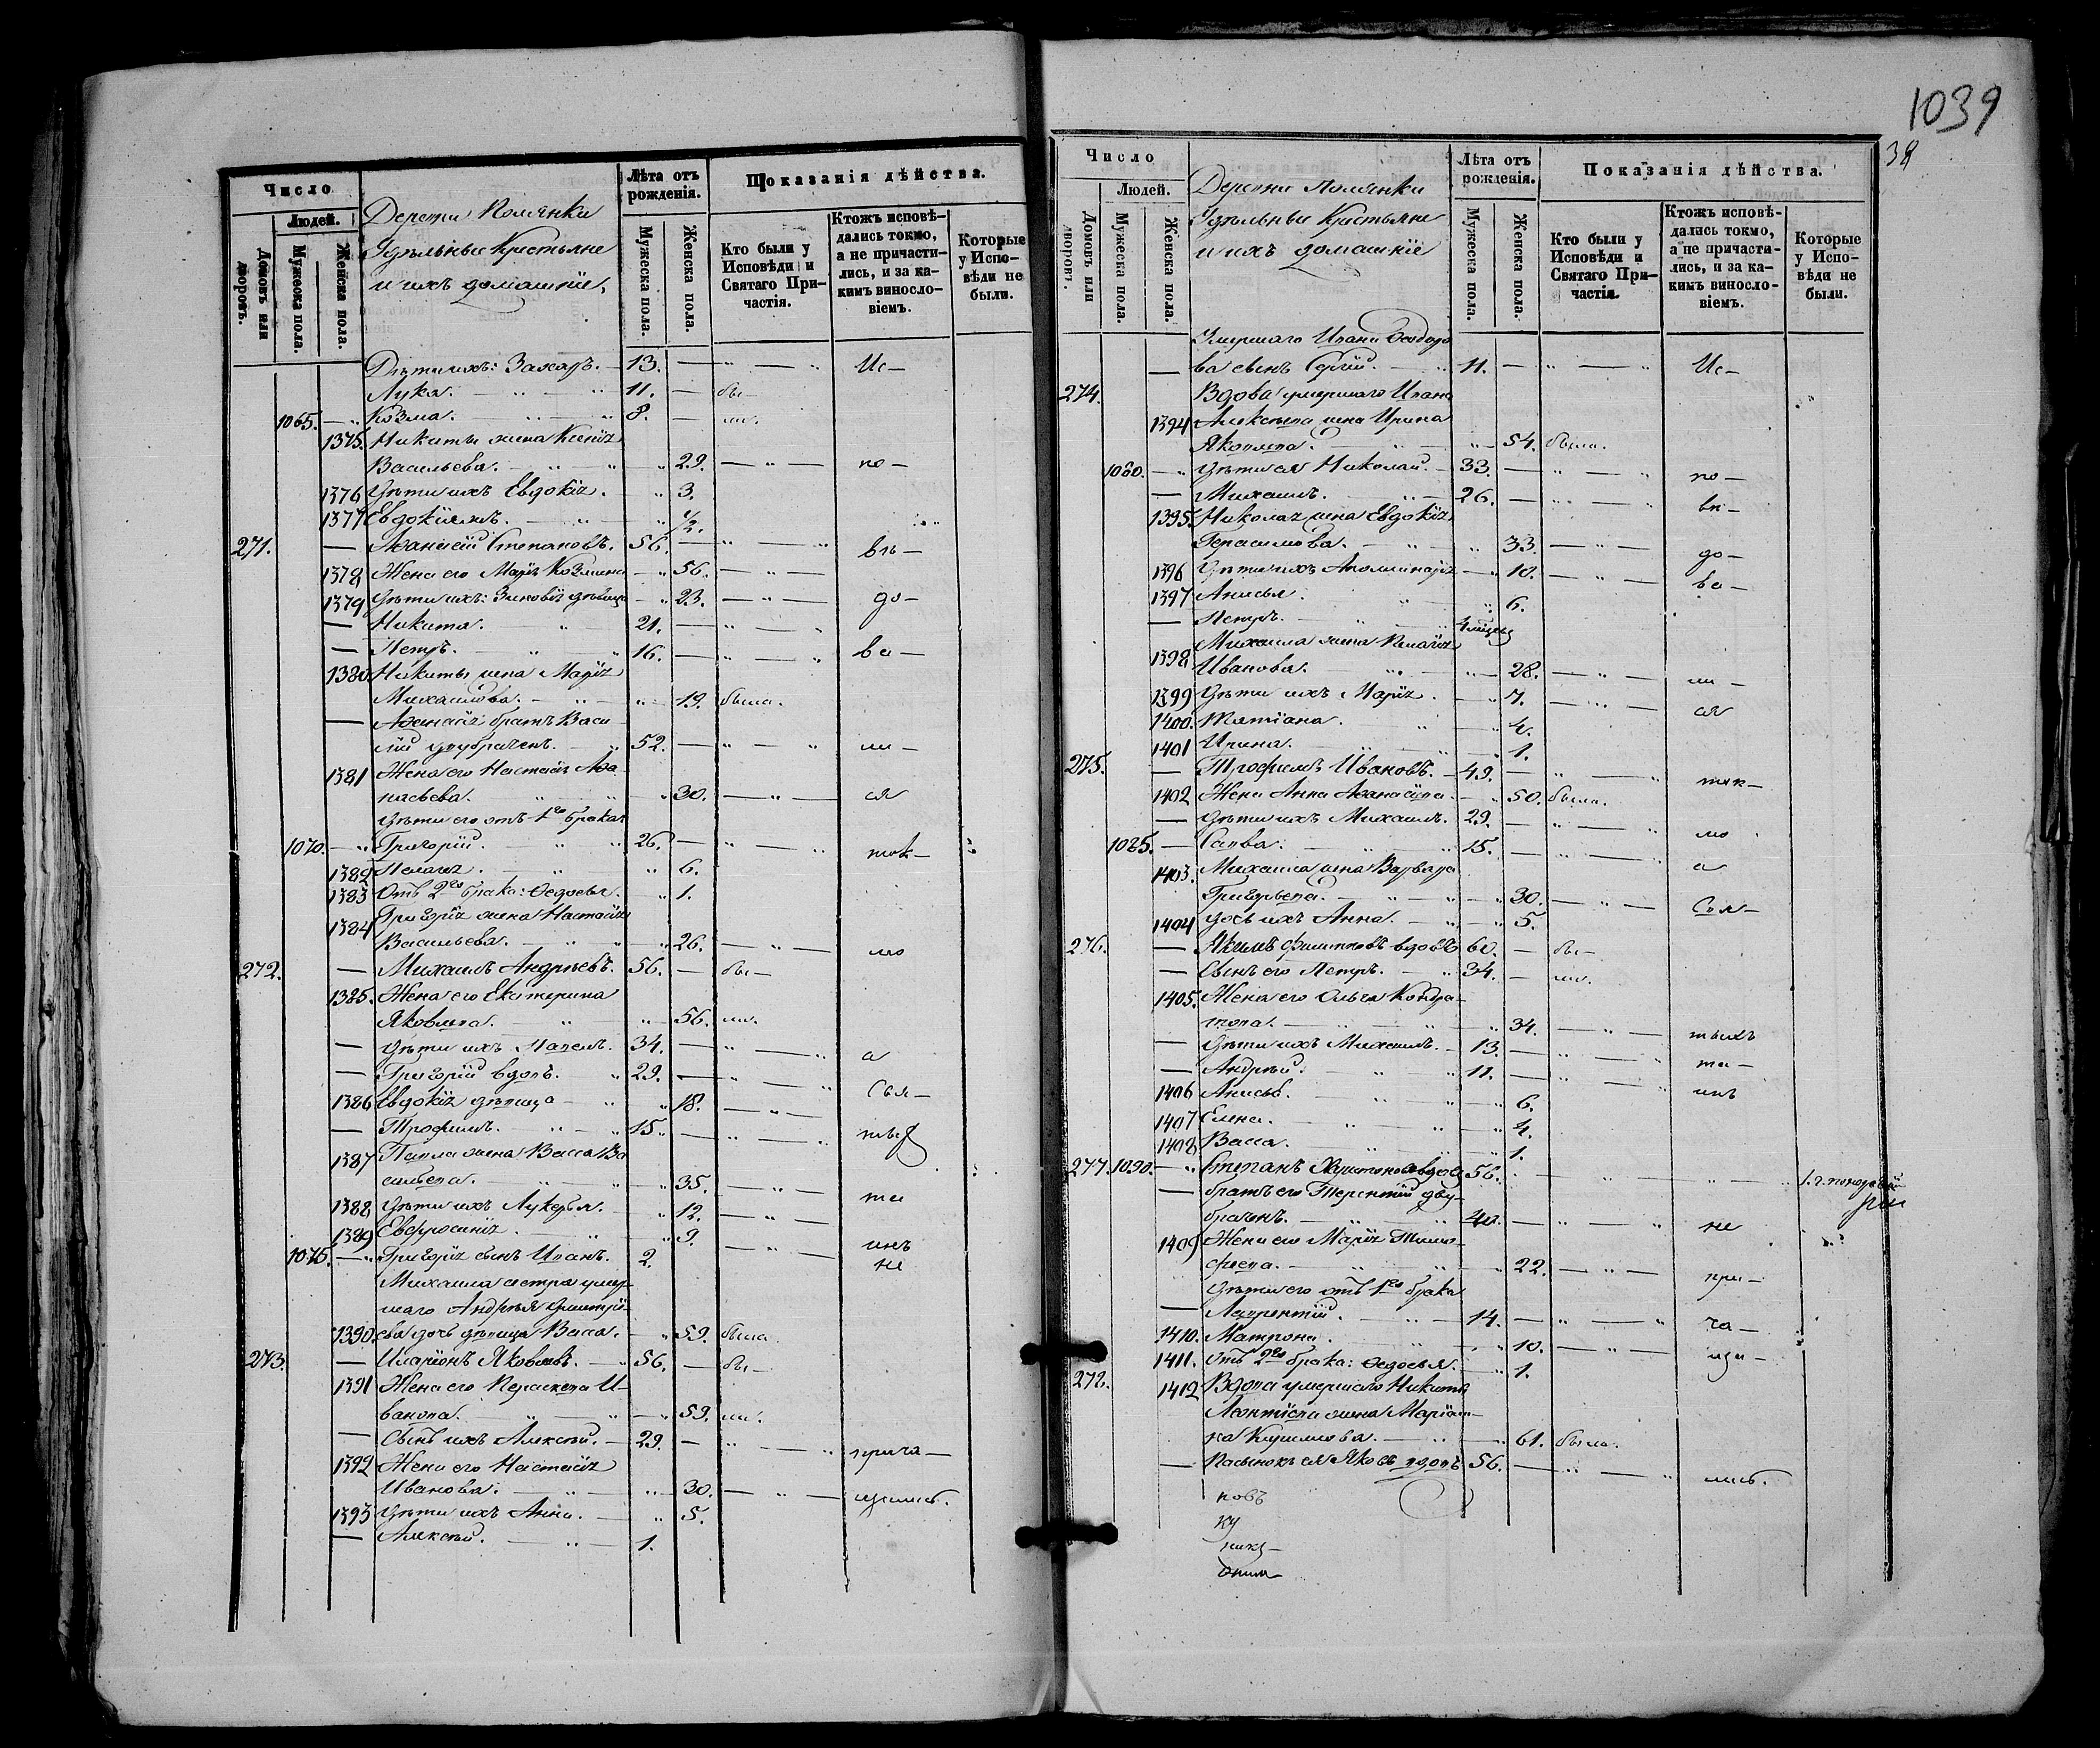 1039
38
Число
Людей.
Домовъ или дворовъ.
Мужеска пола.
Женска пола.
Деревни Полянки
Удѣльные Крестьяне
и ихъ домашніе,
Лѣта отъ рожденія.
Мужеска пола.
Женска пола.
Показанія дѣйства.
Кто были у Исповѣди и Святаго Причастія.
Ктожъ исповѣдались токмо, а не причастились, и за какимъ винословіемъ.
Которые у Исповѣди не были.
Дѣти ихъ: Захаръ. 13. Ис—
Лука. 11. бы—
1065. Козма. 8. ли.
1375. Никиты жена Ксенія
Васильева. 29. по—
1376 Дѣти ихъ Евдокія. 3.
1377 1/2.
271. Афанасій Степановъ. 56. вѣ—
1378 Жена его Марія Козмина 56.
1379 Дѣти ихъ: дѣвица 23. до—
Никита. 21.
Петръ. 16. ва—
1380 Никиты жена Марія
Михаилова. 19. была.
Афанасія братъ Васи—
лій двубраченъ. 52. ли—
1381 Жена его Настасія Афа—
насьева. 30. ся
Дѣти его отъ 1го брака
1070. Григорій. 26. ток—
1382 Пелагія. 6.
1383 Отъ 2го брака: Федосья. 1.
1384 Григорія жена Настасія
Васильева. 26. мо
272. Михаилъ Андреевъ. 56. бы—
1385. Жена его Екатерина
Яковлева. 56. ли.
Дѣти ихъ Павелъ. 34. а
Григорій вдовъ. 29.
1386 Евдокія дѣвица 18. Свя—
Трофимъ. 15. тых
1387 Павла жена Васса Ва
сильева. 35. та
1388 Дѣти ихъ Лукерья. 12.
1389 Евфросинія. 9. инъ
1075. Григорія сынъ Иванъ. 2. не
Михаила сестра умер—
шаго Андрея Дмитрі—
1390. ева дочь дѣвица Васса. 59. была
273. Иларіонъ Яковлевъ. 56. бы—
1391 Жена его Параскева И—
ванова. 59. ли.
Сынъ ихъ Алексѣй. 29. прича—
1392 Жена его Настасія
Иванова. 30. щались.
1393 Дѣти ихъ Анна. 5.
Алексѣй. 1.
Число
Людей.
Домовъ или дворовъ.
Мужеска пола.
Женска пола.
Деревни Полянки
Удѣльные Крестьяне
и ихъ домашніе
Лѣта отъ рожденія.
Мужеска пола.
Женска пола.
Показанія дѣйства.
Кто были у Исповѣди и Святаго Причастія.
Ктожъ исповѣдались токмо, а не причастились, и за какимъ винословіемъ.
Которые у Исповѣди не были.
Умершаго Ивана Феодоро
ва сынъ Сергій. 11. Ис—
274. Вдова умершаго Ивана
1394 Алексѣева жена Ирина
Яковлева. 54. была.
1080. Дѣти ея Николай. 33. по—
Михаилъ. 26. вѣ—
1395. Николая жена Евдокія
Герасимова. 33. до—
1396 Дѣти ихъ Аполинарія 10. ва—
1397 Анисья. 6.
Петръ.
1398 Михаила жена Пелагія
Иванова. 28. ли—
1399 Дѣти ихъ Марія. 7. ся
1400. Татіана. 4.
1401 Ирина. 1.
275. Трофимъ Ивановъ. 49. ток—
1402 Жена Анна Афанасіева. 50. была.
Дѣти ихъ Михаилъ. 29. мо
1085. Савва. 15. а
1403. Михаила жена Варвара
Григорьева. 30. Свя—
1404 Дочь ихъ Анна. 5.
276. Якимъ Филиповъ вдовъ 60. бы—
Сынъ его Петръ. 34. ли.
1405. Жена его Ольга Кондра—
това. 34. тыхъ
Дѣти ихъ Михаилъ. 13. та—
Андрей. 11. инъ
1406 Анисья. 6.
1407 Елена. 4.
1408 Васса. 1.
277. 1090. Степанъ 56.
братъ его Терентій дву—
браченъ. 40. не
1409 Жена его Марія Тимо—
феева. 22. при—
Дѣти его отъ 1го брака
Лаврентій. 14. ча—
1410. Матрона. 10. ща—
1411. Отъ 2го брака: Федосья. 1.
278. 1412 Вдова умершаго Никиты
Леонтіева жена Маріам—
на 61. была.
Пасынокъ ея Яковъ вдовъ 56. лись.